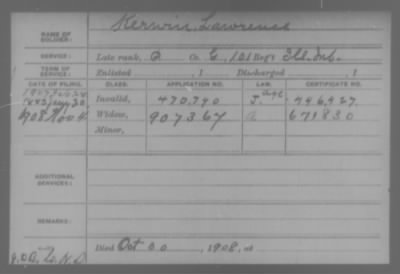 NAME OF SOLDIER: Kerwin, Lawrence
SERVICE: Late rank, P. Co. G, 101 Reg't Ill. Inf.
TERM OF SERVICE: Enlisted , 1 Discharged , 1
DATE OF FILING. CLASS. APPLICATION NO. LAW. CERTIFICATE NO.
Invalid, 470.790 446,427
1908 Nov 4 Widow, 907367 671830
Minor,
ADDITIONAL SERVICES:
REMARKS:
Died Oct 00, 1908, at